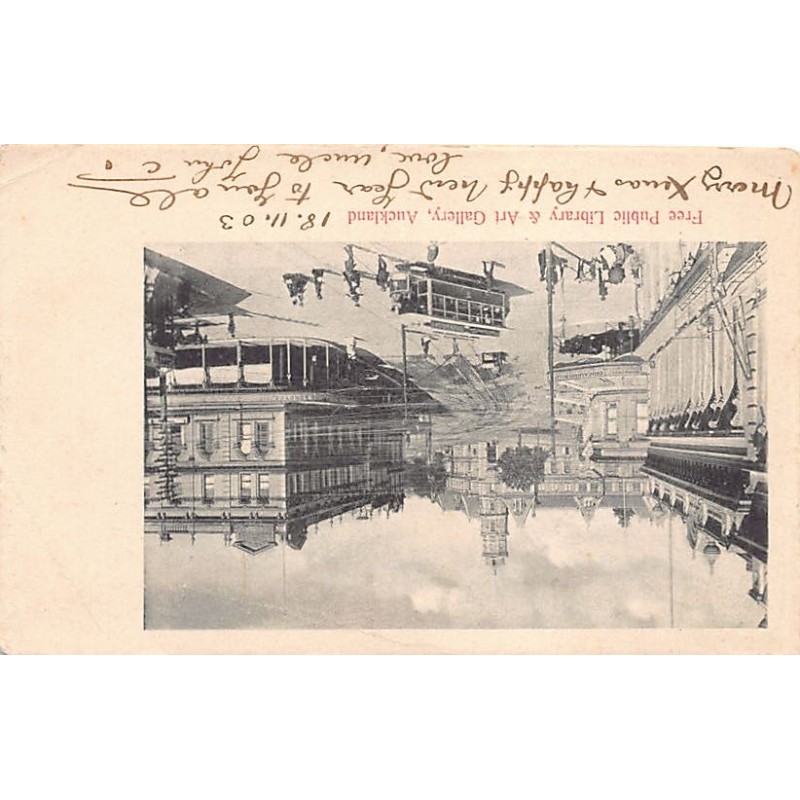 Free Public Library & Art Gallery, Auckland
18.11.03
Merry Xmas & happy New Year to you all
love, uncle John C.